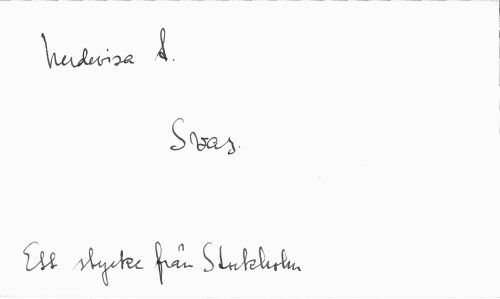 herdevisa A.
Svar.
Ett stycke från Stockholm